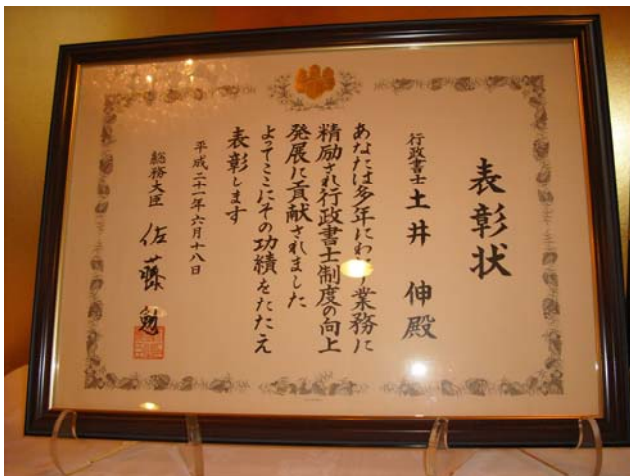 表彰状
行政書士 土井 伸殿
あなたは多年にわたり業務に
精励され行政書士制度の向上
発展に貢献されました
よってここにその功績をたたえ
表彰します
平成二十一年六月十八日
総務大臣 佐藤勉